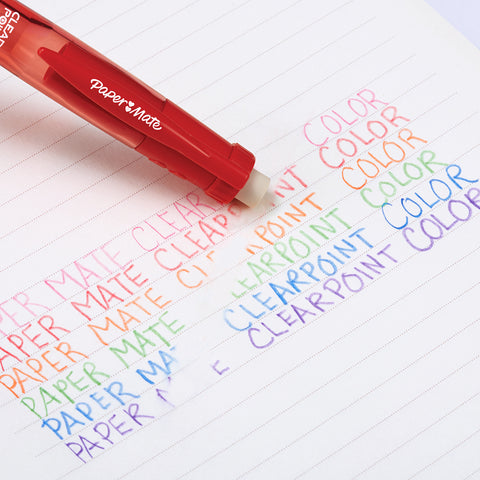 CLEAR
PAPER MATE
PER MATE CLEAR COLOR
PAPER MATE CLEARPOINT COLOR
PAPER MATE C POINT COLOR
PAPER MATE EARPOINT COLOR
PAPER MA CLEARPOINT COLOR
PAPER MA E CLEARPOINT COLOR